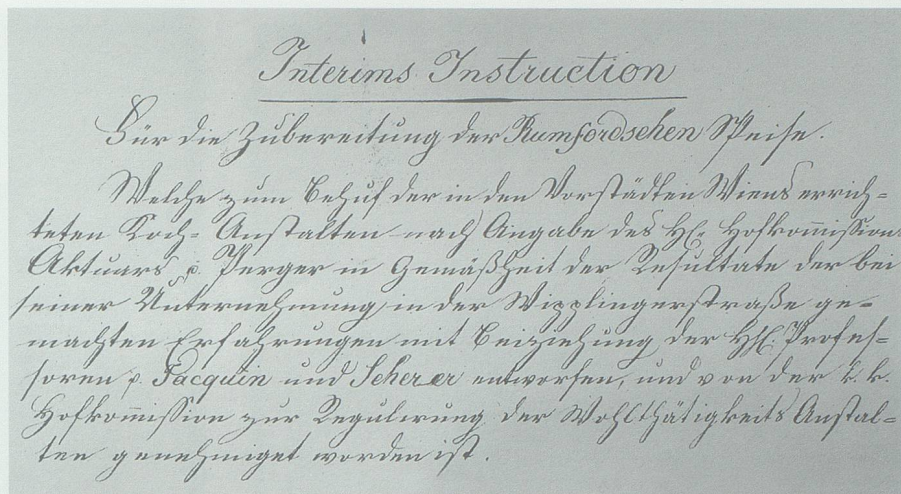 Interims Instruction
Für die Zubereitung der Rumfordschen Speise.
Welche zum Behuf der in den Vorstädten Wiens errich-
teten Koch- Anstalten nach Angabe des H. Hofkom̅issions
Aktuars v. Perger in Gemäßheit der Resultate der bei
seiner Unternehmung in der Wipplingerstraße ge-
machten Erfahrungen mit Beiziehung der HH. Profes-
soren v. Jacquin und Scherer entworfen, und von der k. k.
Hofkom̅ission zur Regulirung der Wohlthätigkeits Anstal-
ten genehmiget worden ist.